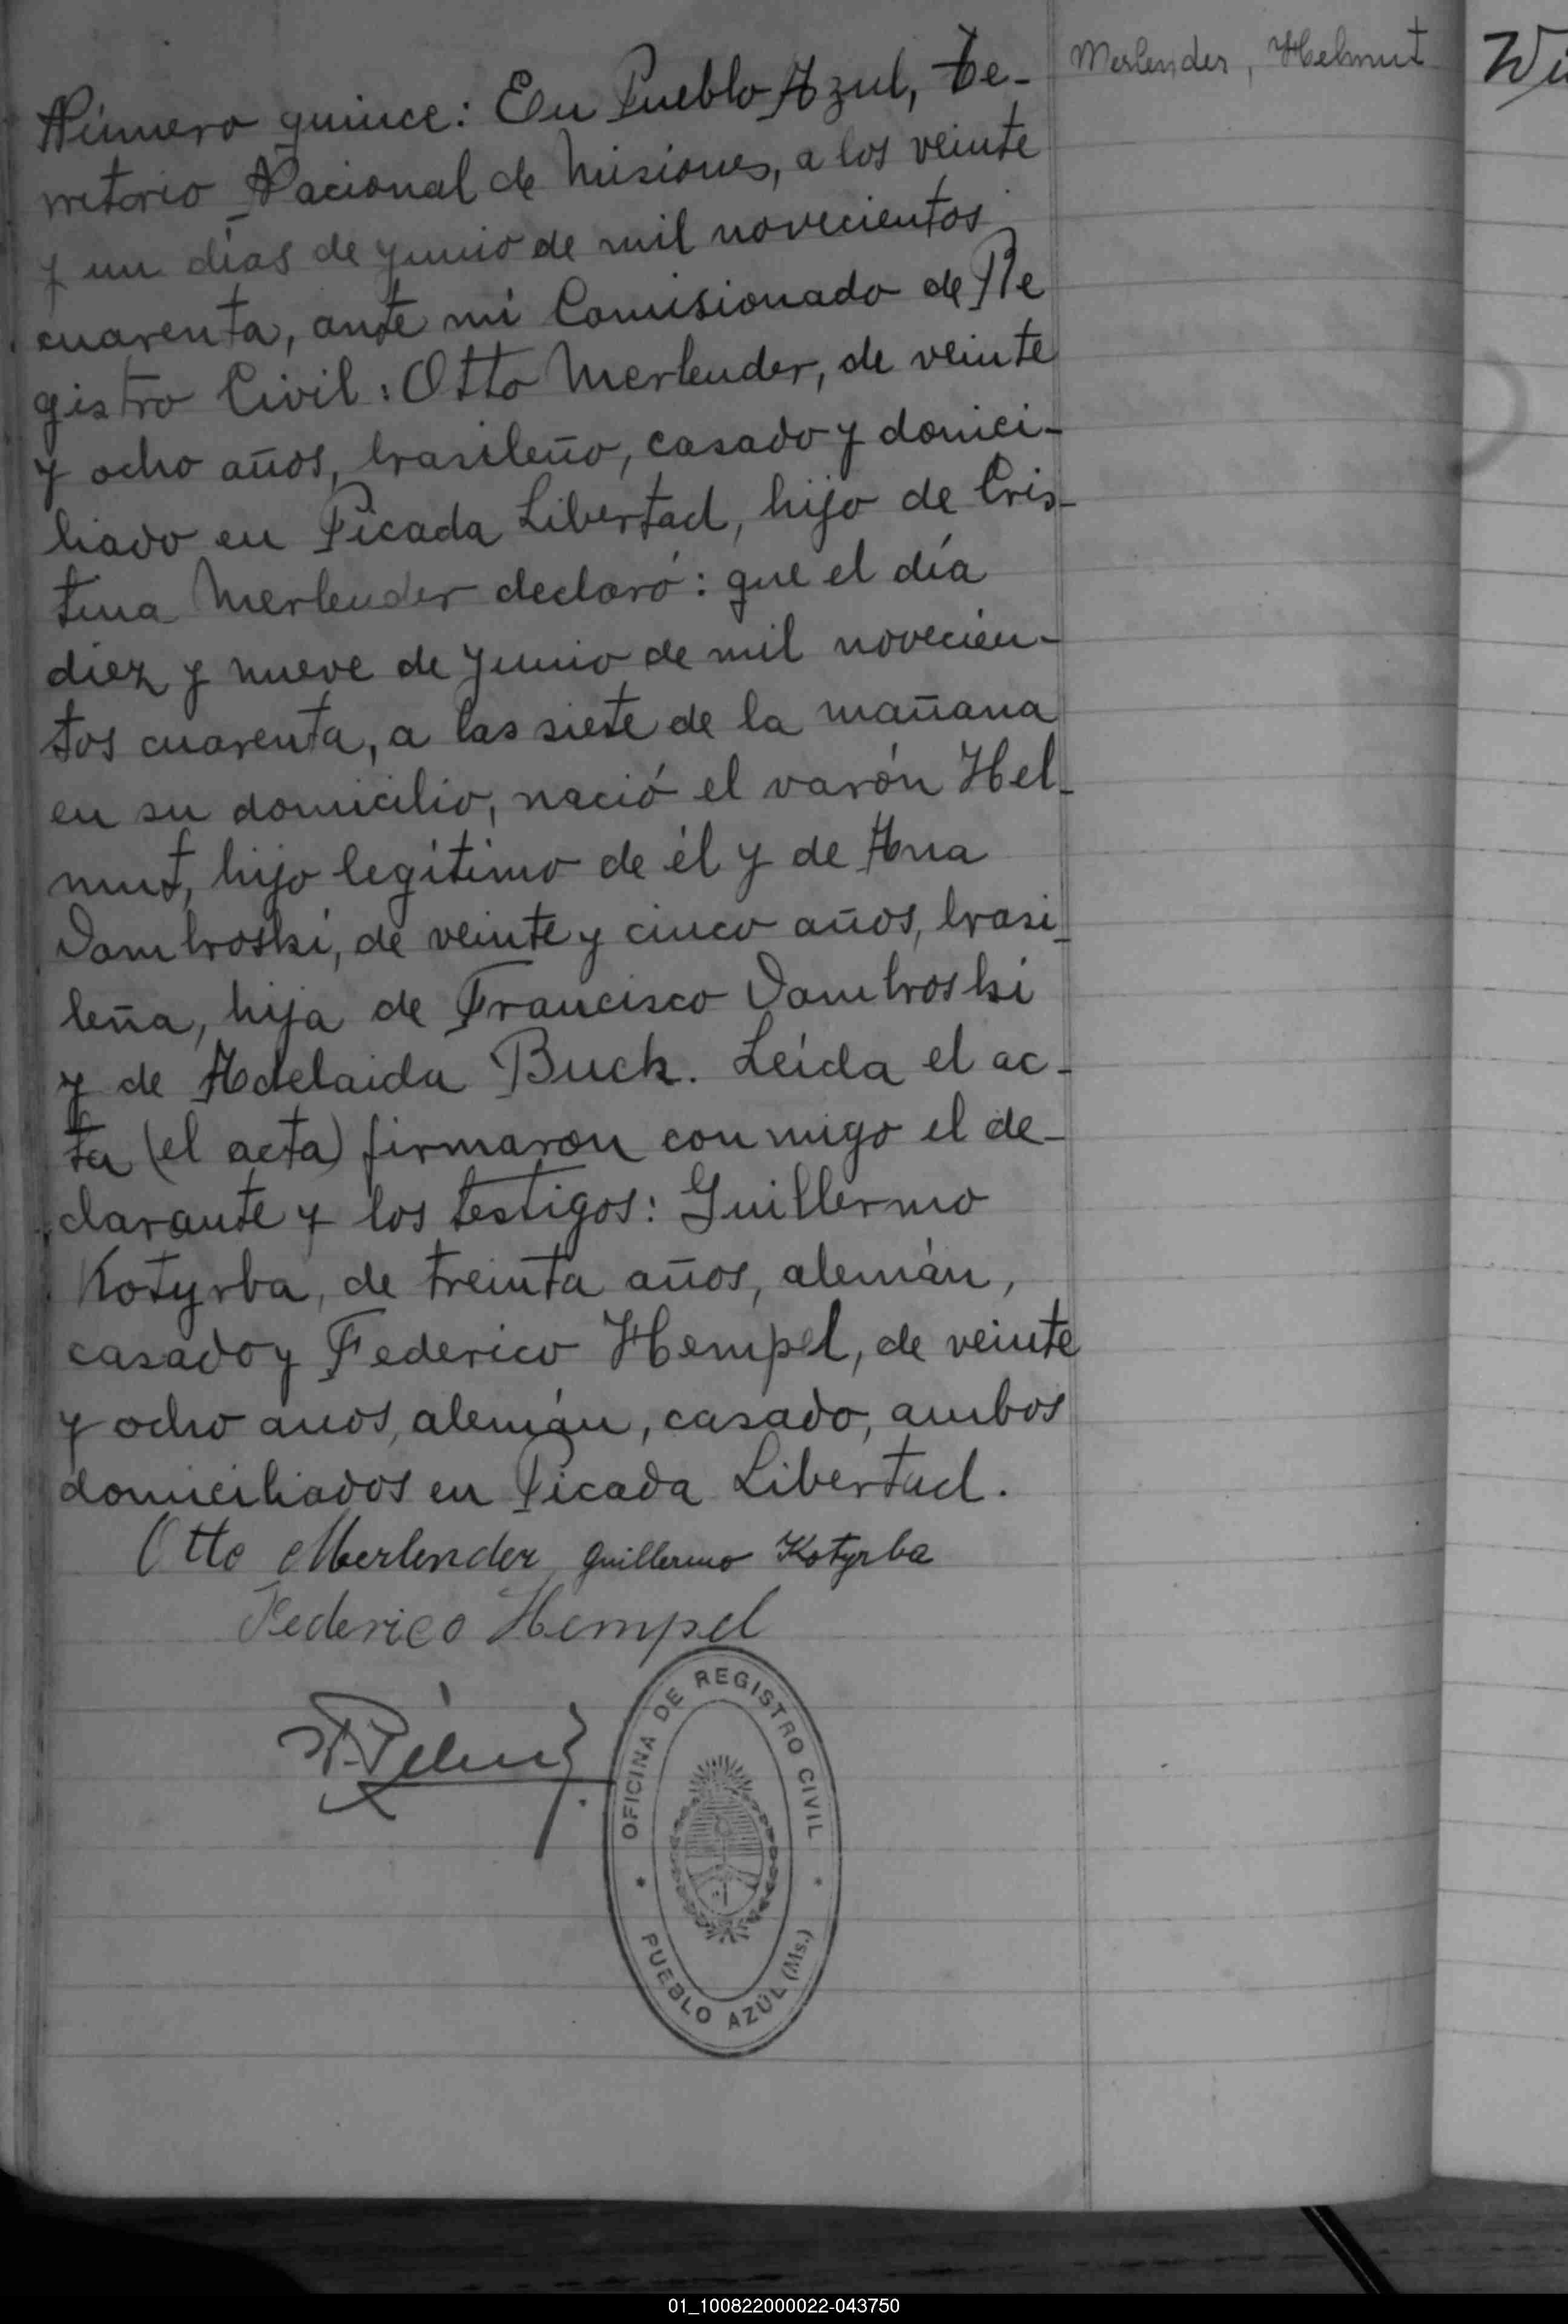 Merlender, Helmut
Número quince: En Pueblo Azul, Te-
rritorio Nacional de Misiones, a los veinte
y un días de Junio de mil novecientos
cuarenta, ante mí Comisionado de Re
gistro Civil: Otto Merlender, de veinte
y ocho años, brasileño, casado y domici-
liado en Picada Libertad, hijo de Cris-
tina Merlender declaró: que el día
diez y nueve de Junio de mil novecien-
tos cuarenta, a las siete de la mañana
en su domicilio, nació el varón Hel-
mut, hijo legítimo de él y de Ana
Dambroski, de veinte y cinco años, brasi-
leña, hija de Francisco Dambroski
y de Adelaida Buck. Leída el ac-
ta (el acta) firmaron conmigo el de-
clarante y los testigos: Guillermo
Kotyrba, de treinta años, alemán,
casado y Federico Hempel, de veinte
y ocho anos, alemán, casado, ambos
domiciliados en Picada Libertad.
Otto Merlender Guillermo Kotyrba
Federico Hempel
OFICINA DE REGISTRO CIVIL
* PUEBLO AZÚL (Ms.) *
Wi
01_100822000022-043750